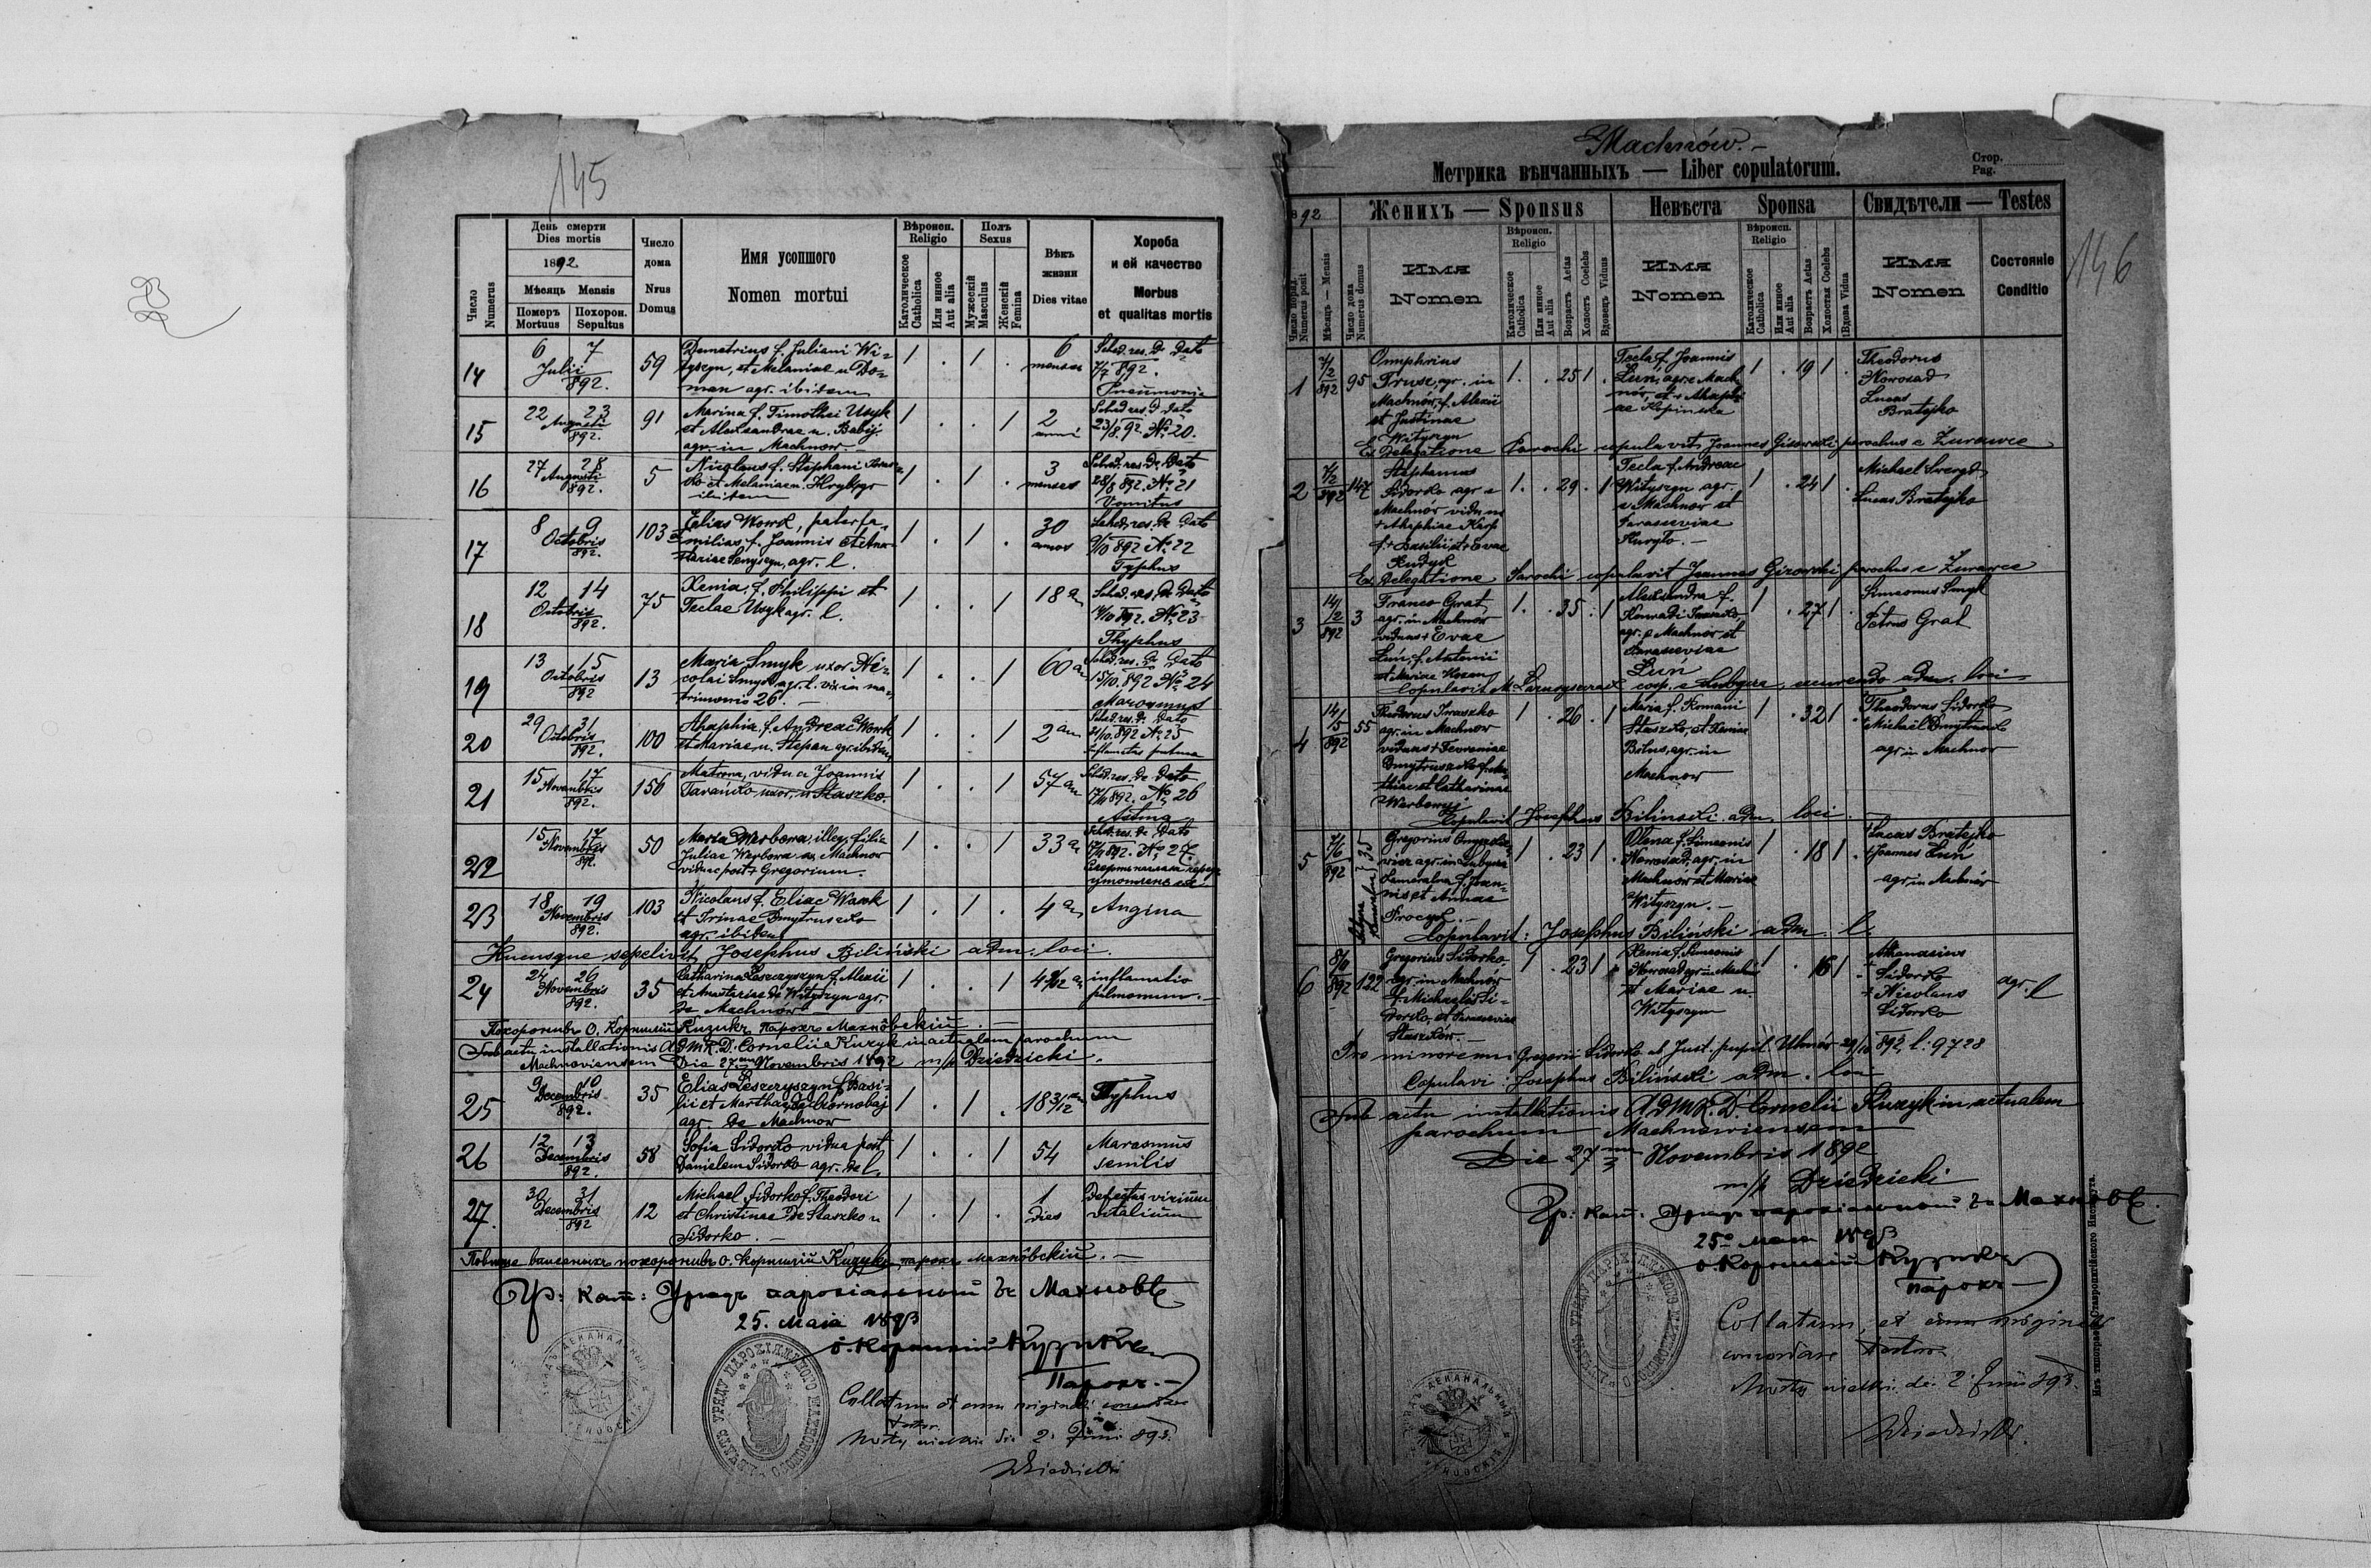 145
День смерти
Dies mortis
1892
Мѣсяць Mensis
Померъ Mortuus
Похорон. Sepultus
Число Numerus
Число дома
Nrus Domus
Имя усопшого
Nomen mortui
Вѣроисп.
Religio
Католическое Catholica
Или инное Aut alia
Полъ
Sexus
Мужескій Masculus
Женскій Femina
Вѣкъ жизни
Dies vitae
Хороба
и ей качество
Morbus
et qualitas mortis
14 6 7 Julii 892. 59
Demetrius f. Juliani Wi-
tyszyn, et Melaniae n. Do-
man agr. ibidem
1 . 1 . 6 menses
Sched. res. de Dato
7/7 892.
Pneumonia
15 22 23 Augusti 892. 91
Marina f. Timothei Usyk
et Alexandrae n. Babij
agr. in Machnow. -
1 . . 1 2 anni
Sched. res. d Dato
23/8 92 No. 20.
16 27 28 Augusti 892. 5
Nicolaus f. Stephani
et Melaniae n. Hryb agr
ibidem
1 . 1 . 3 menses
Sched. res. de Dato
28/8 892. No. 21
Vomitus
17 8 9 Octobris 892. 103
Elias Wowk, paterfa-
milias, f. Joannis et Ana-
stasiae Senyszyn, agr. l.
1 . 1 . 30 annos
Sched. res. de Dato
9/10 892 No. 22
Typhus
18 12 14 Octobris 892. 75
Xenia, f. Philippi et
Teclae Usyk agr. l.
1 . . 1 18 a
Sched. res. de Dato
14/10 892. No. 23
Thyphus
19 13 15 Octobris 892 13
Maria Smyk uxor Ni-
colai Smyk agr. l. vix. in ma-
trimonio 26. -
1 . . 1 60 a
Sched. res. de Dato
15/10. 892 No. 24
20 29 31 Octobris 892. 100
Ahaphia, f. Andreae Wowk
et Mariae n. Stepan agr. ibidem
1 . . 1 2 an
Sched. res. de Dato
31/10. 892 No. 25
21 15 17 Novembris 892. 156
Matrona, vidua Joannis
Tarańko uxor, n Staszko.
1 . . 1 57 an
Sched. res. de Dato
17/11 892. No. 26
Astma
22 15 17 Novembris 892. 50
Maria Werbowa, illeg. filia
Juliae Werbowa ex Machnow
viduae post + Gregorium.
1 . . 1 33 a
Sched. res. de Dato
17/11 892. No. 27.
23 18 19 Novembris 892. 103
Nicolaus f. Eliae Wowk
et Irinae Dmytrusczko
agr. ibidem
1 . 1 . 4 an
Angina
Hucusque sepelivit Josephus Biliński adm. loci.
24 24 26 Novembris 892. 35
Catharina Leszczyszyn f. Alexii
et Anastasiae de Wityszyn agr.
de Machnów
1 . . 1
inflamatio
pulmonum. -
Похоронивъ О. Корнилій Кизикъ парохъ Махнôвскій. -
Sub actu installationis A.D.M.R.D. Cornelii Kuzyk in actualem parochum
Machnoviensem Die 27 Novembris 1892 m/p Dziedzicki.
25 9 10 Decembris 892. 35
Elias Leszczyszyn f. Basi-
lii et Marthae de Czornobaj
agr. de Machnow
1 . 1 . 18 3/12 an
Typhus
26 12 13 Decembris 892. 58
Sofia Sidorko vidua post
Danielem Sidorko agr. de l.
1 . . 1 54
Marasmus
senilis
27. 30 31 Decembris 892 12
Michael Sidorko f. Theodori
et Christinae de Staszko n
Sidorko. -
1 . 1 . 1 dies
Defectus virium
vitalium
похоронивъ о. Корнилій Kuzyk, парохъ махнôвскій. -
Гр: кат: Урядъ парохіяльный въ Махновѣ
25. Мая 1893
о. Корнилій Кузикъ
Парохъ. -
Collatum et cum originali concordare
testor
Mosty wielkie die 2. Junii 893.
Dziedzicki
Machnów. -
Метрика вѣнчанныхъ — Liber copulatorum.
Стор.
Pag.
146
892
Женихъ — Sponsus
Невѣста Sponsa
Свидѣтели — Testes
Число поряд. Numerus posit
Мѣсяць — Mensis
Число дома Numerus domus
Имя Nomen
Вѣроисп. Religio
Католическое Catholica
Или инное Aut alia
Возрастъ Aetas
Холостъ Coelebs
Вдовецъ Viduus
Имя Nomen
Вѣроисп. Religio
Католическое Catholica
Или инное Aut alia
Возрастъ Aetas
Холостая Coelebs
Вдова Vidua
Имя Nomen
Состояніе
Conditio
1 892 95
Onuphrius
Prusz agr. in
Machnów, f. Alexii
et Justinae
Wityszyn
1. . 25 1 .
Tecla f. Joannis
Luń, agr. e Mach-
nów, et + Ahaphi-
ae Kopinska
1 . 19 1 .
Theodorus
Nowosad
Lucas
Bratejko
Ex Delegatione Parochi copulavit Joannes Gizowski parochus e Zurawce
2 892 147
Stephanus
Sidorko agr e
Machnów viduus
+ Ahaphiae Karp
f. + Basilii et + Evae
Kudyk
1. . 29. 1
Tecla f. Andreae
Wityszyn agr.
e Machnow et
Parasceviae
Kuryło. -
1 . 24 1 .
Michael
Lucas Bratejko
Ex Delegatione Parochi copulavit Joannes Gizowski parochus e Zurawce
3 14/2 892 3
Franco Grat
agr. in Machnów
viduus + Evae
Luń, f. Antonii
1. . 35 . 1
Alexandra f.
Konradi Iwaszko,
agr. e Machnow et
Parasceviae
Luń
1 . 27 1 .
Simeonus Smyk
Petrus Grat
Copulavit M. coop. e Lubycza, excurendo adm. loci -
4 14/5 892 55
Theodorus Iwaszko
agr. in Machnow
viduus + Fevroniae
Dmytrusczko f. Ma-
thiae et Catharinae
Werbowyj
1 . 26 . 1
Maria f. Romani
Staszko, et Xeniae
Bilus, agr. in
Machnow
1 . 32 1
Theodorus Sidorko
+ Michael
agr in Machnow
Copulavit Josephus Biliński adm. loci.
5 7/6 892
Gregorius
agr. in Lubycza
Kameralna f. Joan-
nis et Annae
Procyk. -
1 . 23 1 .
Olena f. Simeonis
Nowosad, agr. in
Machnów et Mariae
Wityszyn. -
1 . 18 1 .
Lucas Bratejko
+ Joannes Luń
agr in Machnów
Copulavit: Josephus Biliński adm. l.
6 892 122
Gregorius Sidorko
agr. in Machnów
f. Michaelis Si-
dorko, et Parasceviae
Staszków. -
1 . 23 1
Xenia f. Simeonis
Nowosad agr in Machn
et Mariae n.
Wityszyn
1 . 16 1
Athanasius
Sidorko
+ Nicolaus
Sidorko
agr. l
Pro minorenni Gregorii Sidorko et Just. pupil. Uhnów 29/10 892, l: 9728
Copulavi: Josephus Biliński adm. loci
Sub actu installationis A.D.M.R.D. Cornelii Kuzyk in actualem
parochum Machnowiensem
Die 27 Novembris 1892
m/p Dziedzicki
Гр: кат: Урядъ парохіяльный въ Махновѣ.
25 мая 1893
о. Корнилій Кузикъ
парохъ -
Collatum et cum originali
concordare testor
Mosty wielkie die 2. Junii 893.
Dziedzicki.
Изъ типографіи Ставропигійского Института.